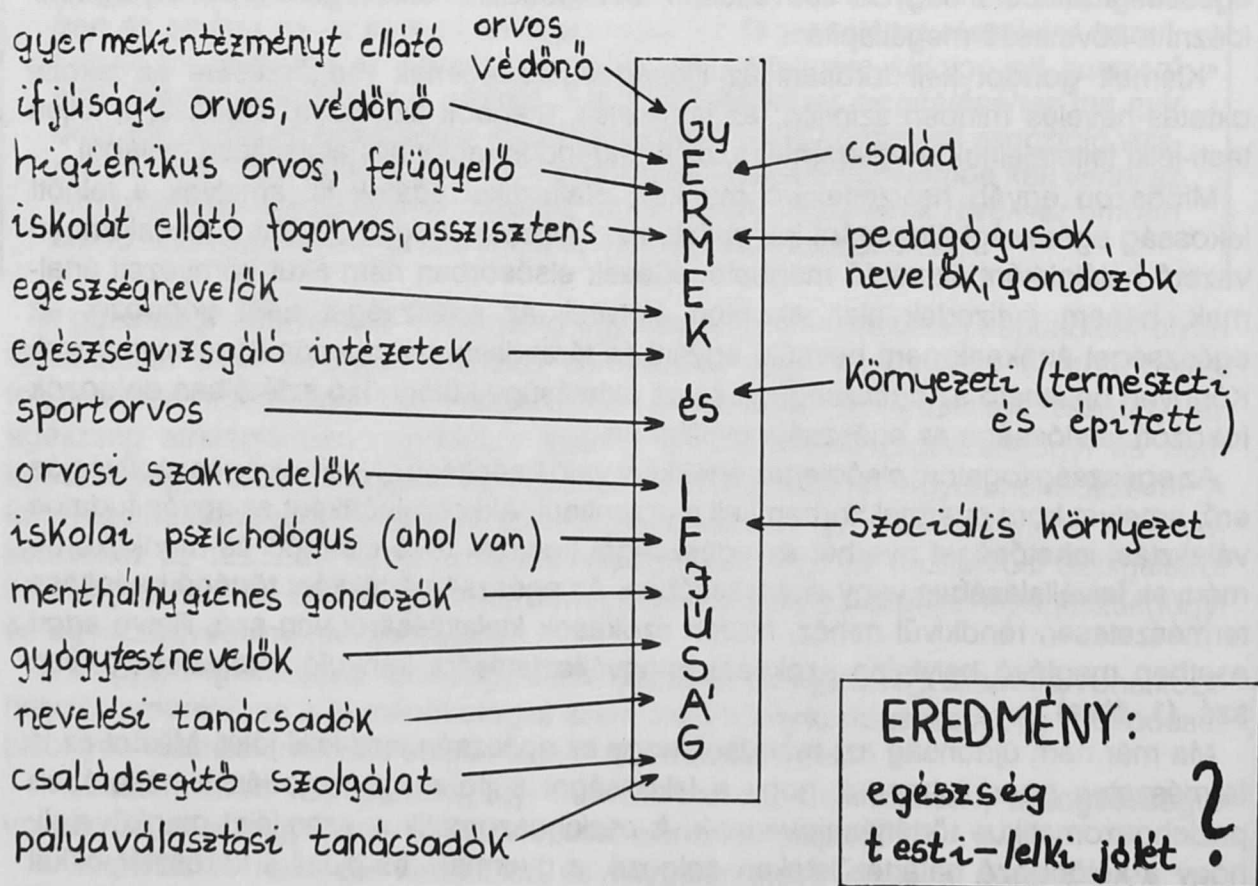 gyermekintézményt ellátó orvos
védőnő
ifjúsági orvos, védőnő
higiénikus orvos, felügyelő
iskolát ellátó fogorvos, asszisztens
egészségnevelők
egészségvizsgáló intézetek
sportorvos
orvosi szakrendelők
iskolai pszichológus (ahol van)
menthálhygiénes gondozók
gyógytestnevelők
nevelési tanácsadók
családsegítő szolgálat
pályaválasztási tanácsadók
Gy
E
R
M
E
K
és
I
F
J
Ú
S
Á
G
család
pedagógusok,
nevelők, gondozók
környezeti /természeti
és épített/
Szociális környezet
EREDMÉNY:
egészség
testi-lelki jólét ?